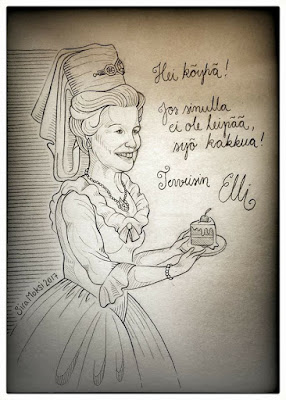 Hei köyhä!
Jos sinulla
ei ole leipää,
syö kakkua!
Terveisin Elli
Siira Moksi 2017